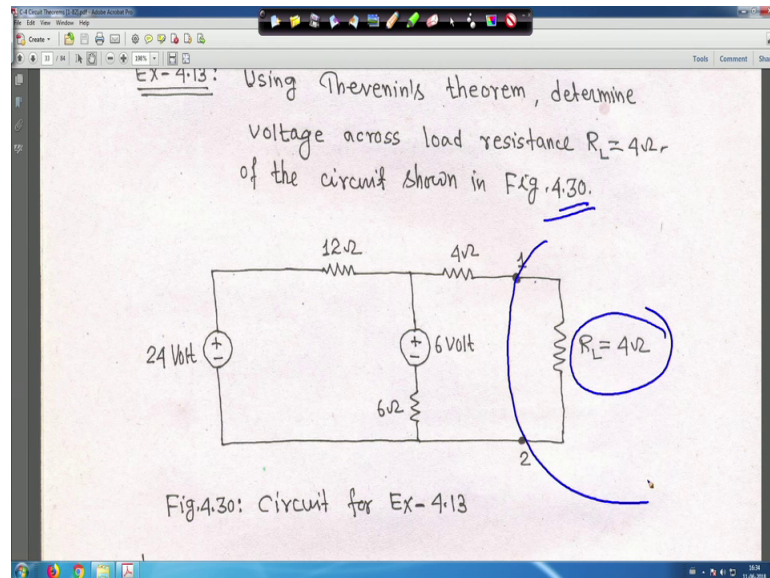 C-4 Circuit Theorems [1-82].pdf - Adobe Acrobat Pro
File Edit View Window Help
Create
33 / 84
198%
Tools Comment
EX-4.13: Using Thevenin's theorem, determine
voltage across load resistance RL = 4Ω,
of the circuit shown in Fig.4.30.
12Ω
4Ω
1
24 Volt
+
-
+
-
6 Volt
RL = 4Ω
6Ω
2
Fig.4.30: Circuit for Ex-4.13
16:34